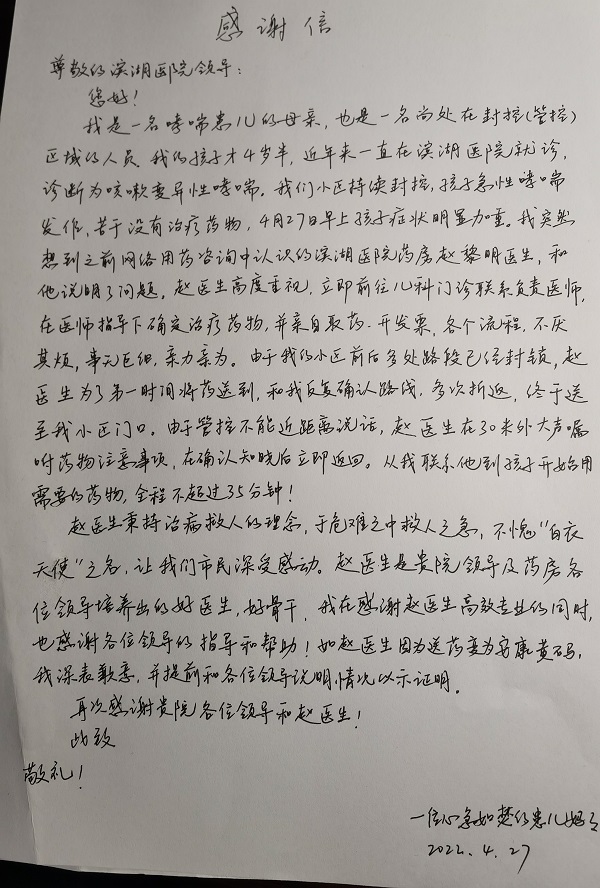 感谢信
尊敬的滨湖医院领导：
您好！
我是一名哮喘患儿的母亲，也是一名尚处在封控（管控）
区域的人员。我的孩子才4岁半，近年来一直在滨湖医院就诊，
诊断为咳嗽变异性哮喘。我们小区持续封控，孩子急性哮喘
发作，苦于没有治疗药物，4月27日早上孩子症状明显加重。我突然
想到之前网络用药咨询中认识的滨湖医院药房赵黎明医生，和
他说明了问题。赵医生高度重视，立即前往儿科门诊联系负责医师，
在医师指导下确定治疗药物，并亲自取药、开发票，各个流程，不厌
其烦，事无巨细，亲力亲为。由于我的小区前后多处路段已经封锁，赵
医生为了第一时间将药送到，和我反复确认路线，多次折返，终于送
至我小区门口。由于管控不能近距离说话，赵医生在30米外大声嘱
咐药物注意事项，在确认知晓后立即返回。从我联系他到孩子开始用
需要的药物，全程不超过35分钟！
赵医生秉持治病救人的理念，于危难之中救人之急，不愧“白衣
天使”之名，让我们市民深受感动。赵医生是贵院领导及药房各
位领导培养出的好医生，好骨干，我在感谢赵医生高效专业的同时，
也感谢各位领导的指导和帮助！如赵医生因为送药变为安康黄码，
我深表歉意，并提前和各位领导说明情况以示证明。
再次感谢贵院各位领导和赵医生！
此致
敬礼！
一位心急如焚的患儿妈妈
2022.4.27